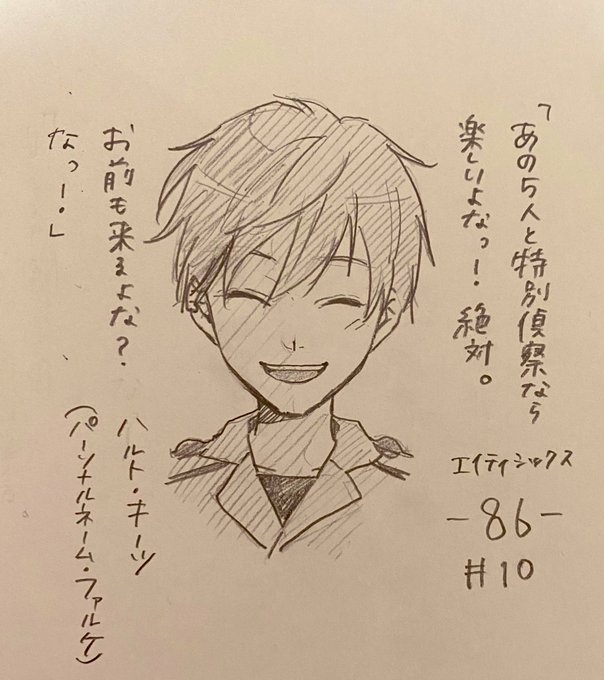 「あの5人と特別偵察なら
楽しいよなっ！絶対。
お前も来るよな？
なっ！」
ハルト・キーツ
(パーソナルネーム・ファルケ)
エイティシックス
-86-
#10